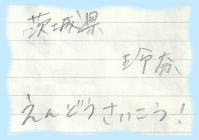 茨城県
玲奈
えんどうさいこう!